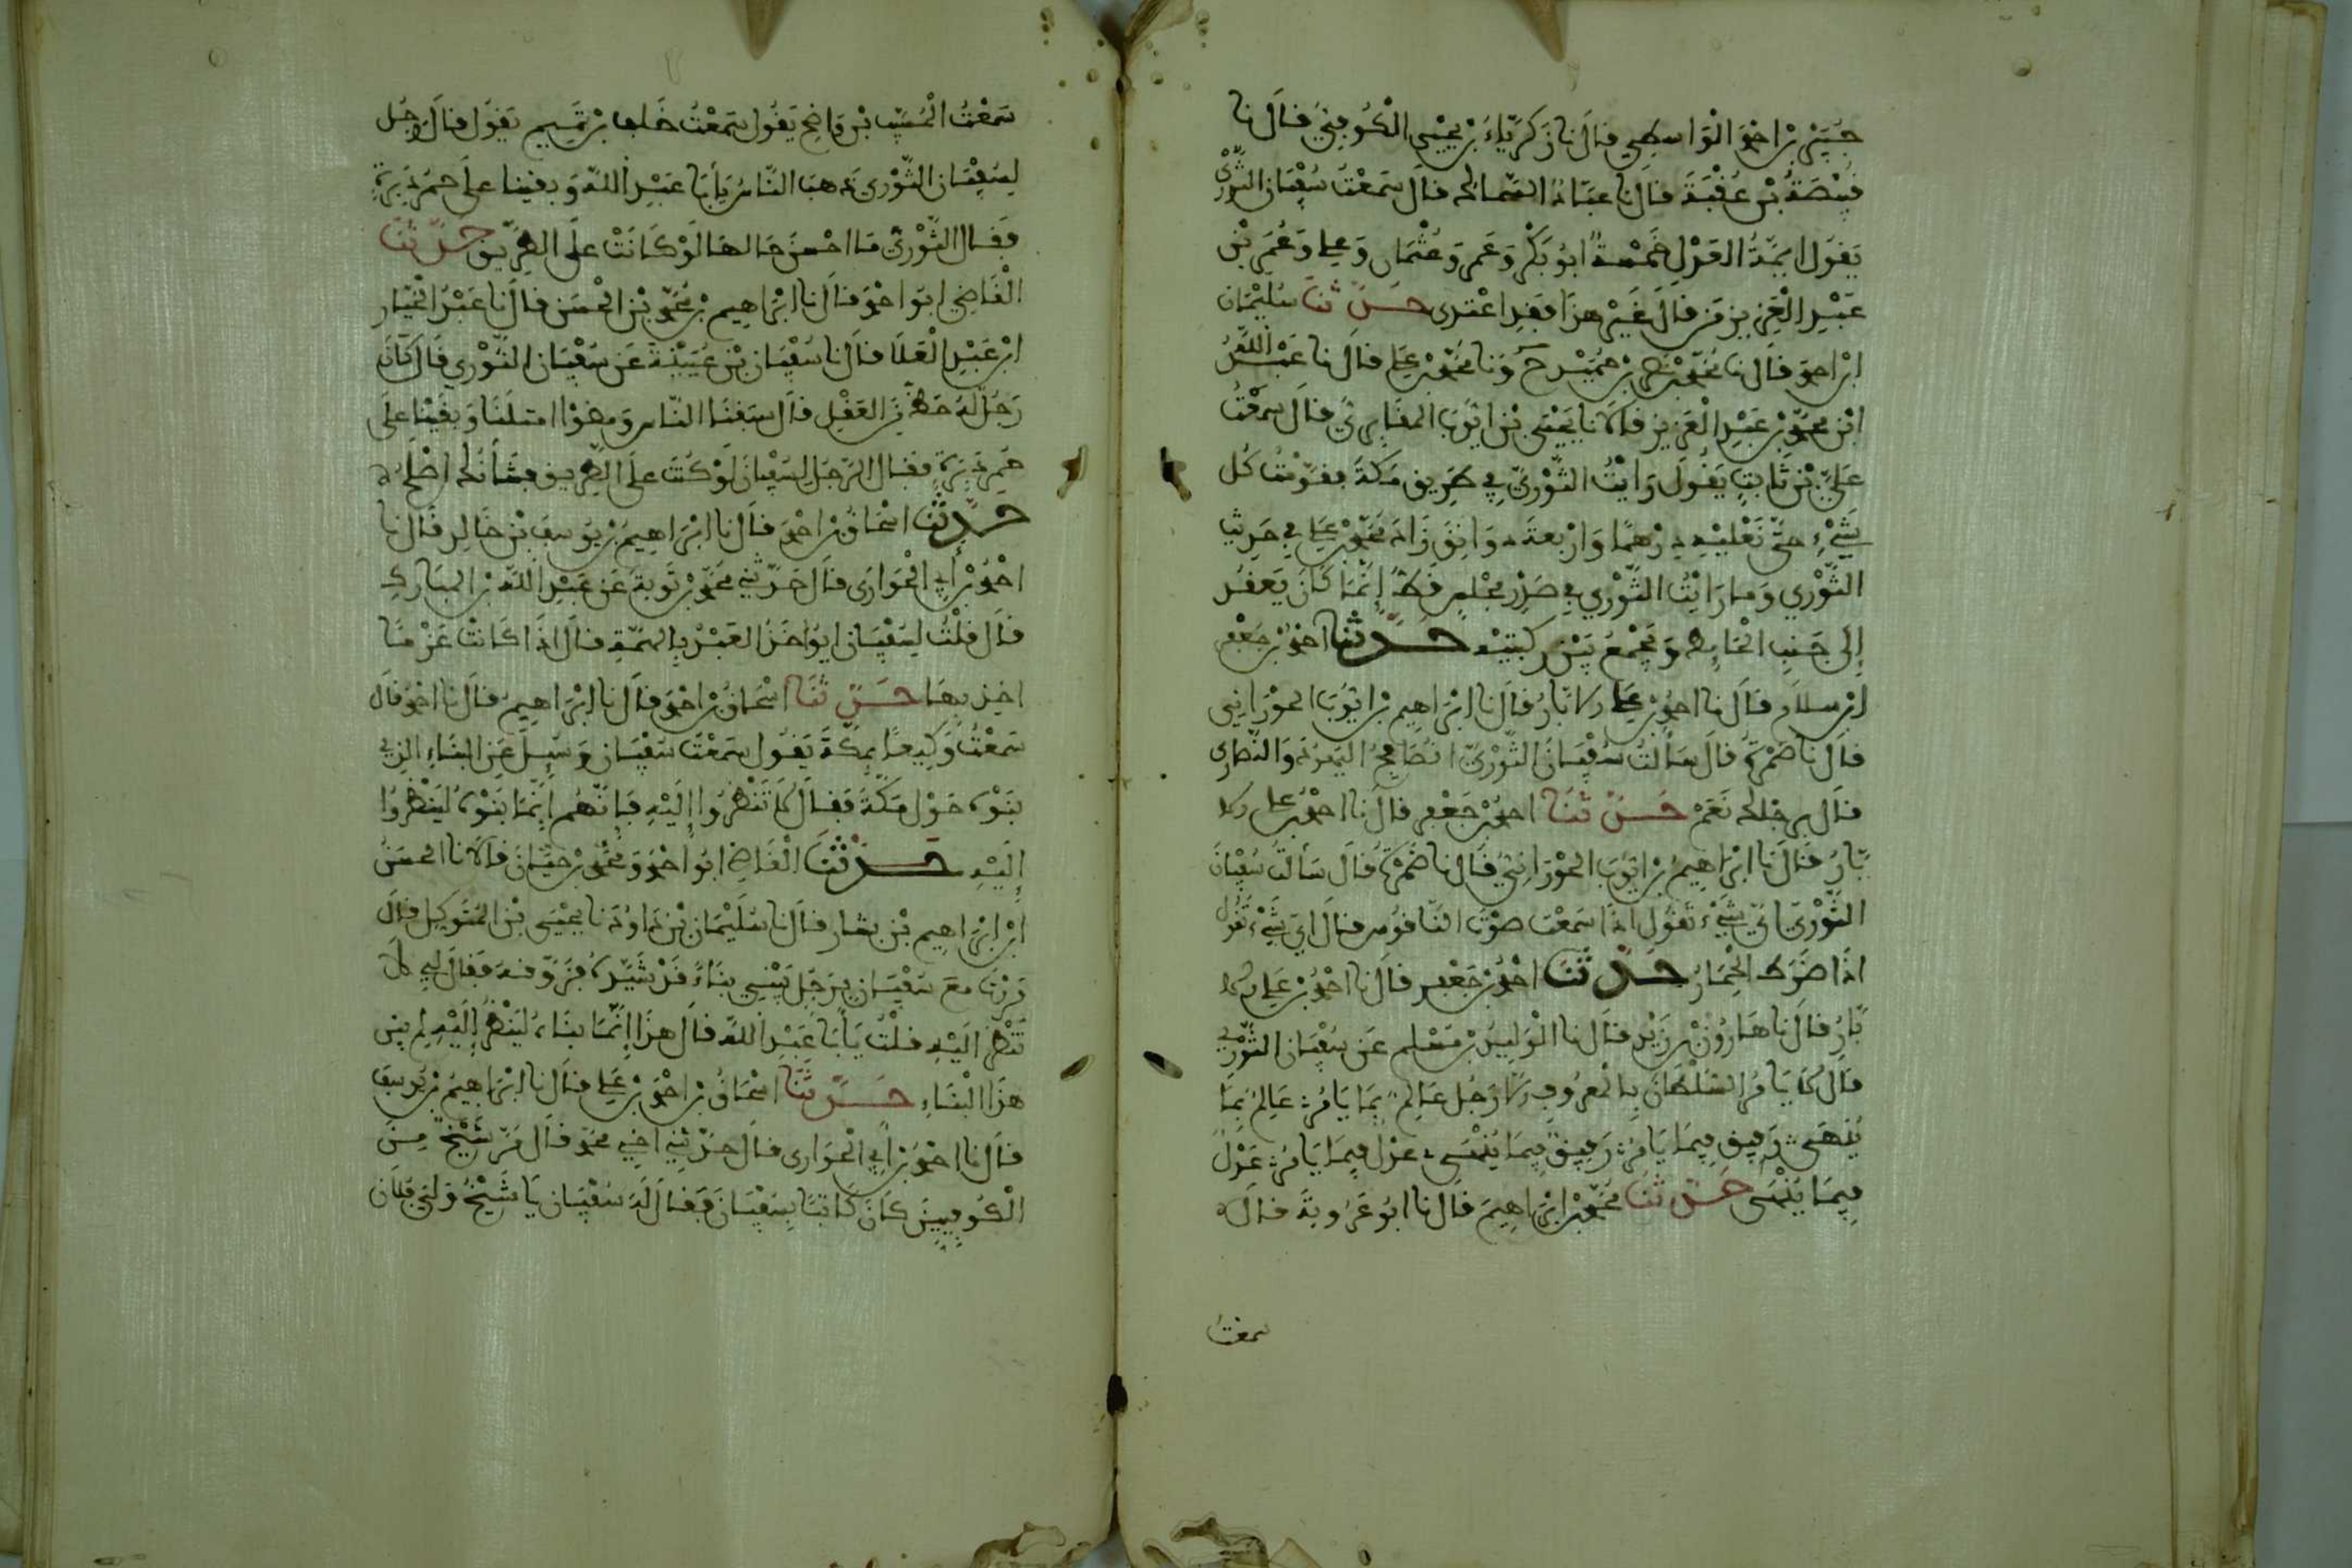 جبير بن احمد الواسطي قال نا زكرياء بن يحيى الكوفي قال نا
قبيصة بن عقبة قال نا عباد السماك قال سمعت سفيان الثوري
يقول ايمة العدل خمسة ابو بكر وعمر وعثمان وعلي وعمر بن
عبد العزيز من قال غير هذا فقد اعتدى حدثنا سليمان
ابن احمد قال نا محمد بن حميد ح ونا محمد بن علي قال نا عبد الله
ابن محمد بن عبد العزيز قالا نا يحيى بن ايوب المقابري قال سمعت
علي بن ثابت يقول رايت الثوري في طريق مكة فقومت كل
شيء حتى نعليه درهما واربعة دوانق زاد محمد بن علي في حديث
الثوري وما رايت الثوري في صدر مجلس قط إنما كان يقعد
إلى جنب الحايط ويجمع بين ركبتيه حدثنا احمد بن جعفر
ابن سلام قال نا احمد بن علي الابار قال نا ابراهيم بن ايوب الحوراني
قال نا ضمرة قال سألت سفيان الثوري اصافح اليهود والنصارى
قال برجلك نعم حدثنا احمد بن جعفر قال نا احمد بن علي الا
بار قال نا ابراهيم بن ايوب الحوراني قال نا ضمرة قال سألت سفيان
الثوري اي شيء تقول اذا سمعت صوت الناقوس قال اي شيء تقول
اذا ضرط الحمار حدثنا احمد بن جعفر قال نا احمد بن علي الا
بار قال نا هارون بن زيد قال نا الوليد بن مسلم عن سفيان الثوري
قال لا يامر السلطان بالمعروف الا رجل عالم بما يامر عالم بما
ينهى رفيق فيما يامر رفيق فيما ينهى عدل فيما يامر عدل
فيما ينهى حدثنا محمد بن ابراهيم قال نا ابو عروبة قال
سمعت
سمعت المسيب بن واضح يقول سمعت خلف بن تميم يقول قال رجل
لسفيان الثوري ذهب الناس يأبا عبد الله وبقينا على حمر دبرة
فقال الثوري ما احسن حالها لو كانت على الطريق حدثنا
القاضي ابو احمد قال نا ابراهيم بن محمد بن الحسن قال نا عبد الجبار
ابن عبد العلا قال نا سفيان بن عيينة عن سفيان الثوري قال كان
رجل له حظ من العقل قال سبقنا الناس ومضوا امامنا وبقينا على
حمر دبرة فقال الرجل لسفيان لو كنت على الطريق فشأنك اصلح
حدثنا اسحاق بن احمد قال نا ابراهيم بن يوسف بن خالد قال نا
احمد بن أبي الحواري قال حدثني محمد بن توبة عن عبد الله بن المبارك
قال قلت لسفيان ايؤاخذ العبد بالهمة قال اذا كانت عزما
اخذ بها حدثنا اسحاق بن احمد قال نا ابراهيم قال نا احمد قال
سمعت وكيعا بمكة يقول سمعت سفيان وسيل عن البناء الذي
بنوه حول مكة فقال لا تنظروا إليه فإنهم إنما بنوه لينظروا
إليه حدثنا القاضي ابو احمد ومحمد بن حيان قالا نا الحسن
ابن ابراهيم بن بشار قال نا سليمان بن داود نا يحيى بن المتوكل قال
مررت مع سفيان برجل يبني بناء قد شيده وزوقه فقال لي لا
تنظر إليه فلت يأبا عبد الله قال هذا إنما بناه لينظر إليه لم يبن
هذا البناء حدثنا اسحاق بن احمد بن علي قال نا ابراهيم بن يوسف
قال نا احمد بن أبي الحواري قال حدثني اخي محمد قال مر شيخ من
الكوفيين كان كاتبا بسفيان فقال له سفيان يا شيخ ولي فلان